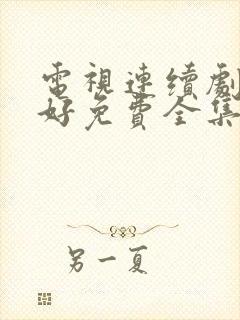 電視連續劇
好免費全集
另一夏